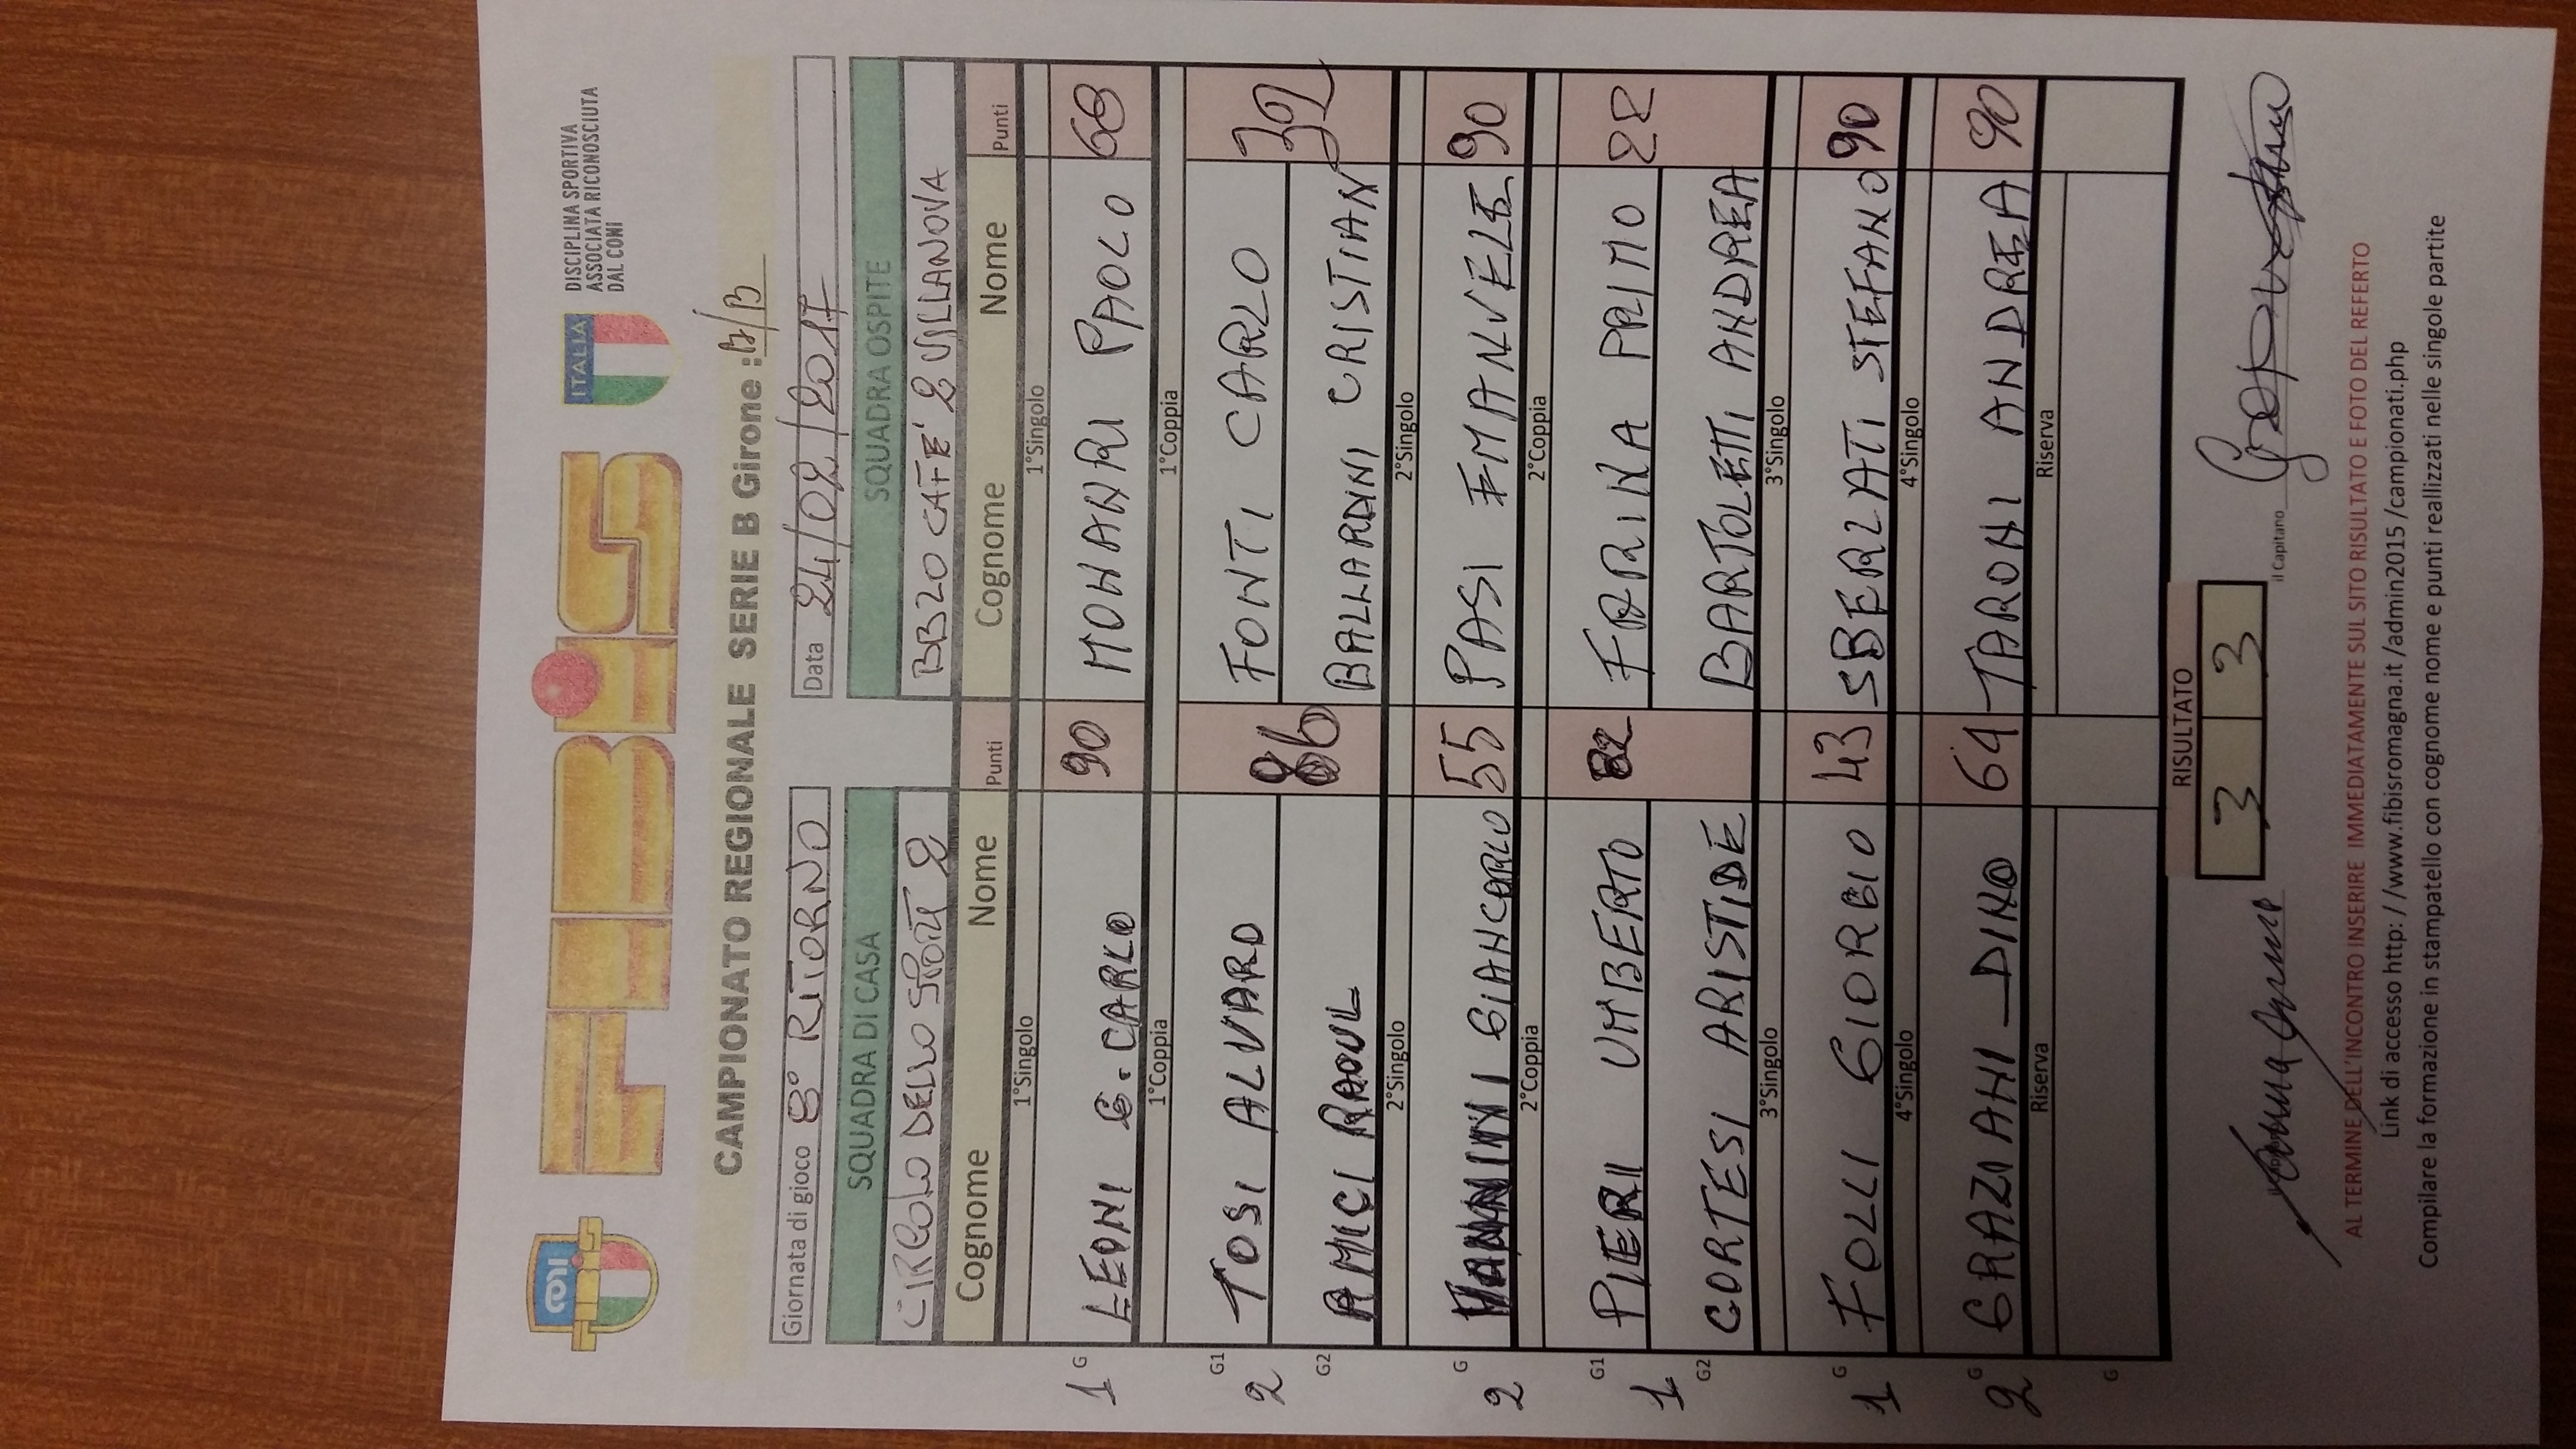 FIBiS
ITALIA
DISCIPLINA SPORTIVA
ASSOCIATA RICONOSCIUTA
DAL CONI
CAMPIONATO REGIONALE SERIE B Girone : B/B
Giornata di gioco 8° RITORNO Data 24/02/2017
SQUADRA DI CASA SQUADRA OSPITE
CIRCOLO DELLO SPORT 2 BB20 CAFFE' 2 VILLANOVA
Cognome Nome Punti Cognome Nome Punti
1°Singolo 1°Singolo
1 G LEONI G. CARLO 90 MONARI PAOLO 68
1°Coppia 1°Coppia
G1 TOSI ALVARO FONTI CARLO
2 86 392
G2 AMICI RAOUL BALLARDINI CRISTIAN
2°Singolo 2°Singolo
2 G GIANCARLO 55 PASI EMANUELE 90
2°Coppia 2°Coppia
G1 PIERI UMBERTO 82 FARINA PRIMO 22
1
G2 CORTESI ARISTIDE BARTOLETTI ANDREA
3°Singolo 3°Singolo
1 G FOLLI GIORGIO 43 SBERLATI STEFANO 90
4°Singolo 4°Singolo
2 G GRAZIANI DINO 64 TARONI ANDREA 90
Riserva Riserva
G
RISULTATO
3 3
il Capitano
AL TERMINE DELL'INCONTRO INSERIRE IMMEDIATAMENTE SUL SITO RISULTATO E FOTO DEL REFERTO
Link di accesso http: / /www.fibisromagna.it /admin2015 /campionati.php
Compilare la formazione in stampatello con cognome nome e punti reallizzati nelle singole partite